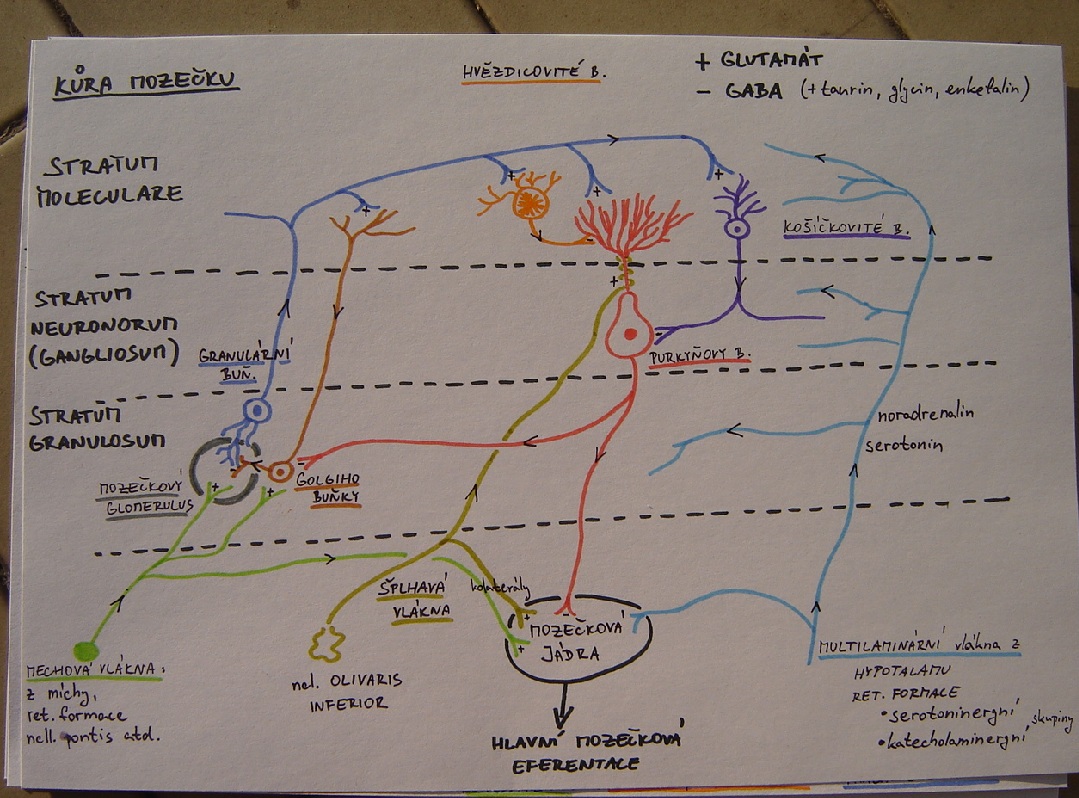 KŮRA MOZEČKU
HVĚZDICOVITÉ B.
+ GLUTAMÁT
- GABA (+ taurin, glycin, enkefalin)
STRATUM
MOLECULARE
KOŠÍČKOVITÉ B.
STRATUM
NEURONORUM
(GANGLIOSUM)
GRANULÁRNÍ
BUŇ.
PURKYŇOVY B.
STRATUM
GRANULOSUM
noradrenalin
serotonin
MOZEČKOVÝ
GLOMERULUS
GOLGIHO
BUŇKY
ŠPLHAVÁ
VLÁKNA
kolaterály
MOZEČKOVÁ
JÁDRA
MECHOVÁ VLÁKNA:
z míchy,
ret. formace
nell. pontis atd.
ncl. OLIVARIS
INFERIOR
MULTILAMINÁRNÍ vlákna z
HYPOTALAMU
RET. FORMACE
• serotoninergní
• katecholaminergní
skupiny
HLAVNÍ MOZEČKOVÁ
EFERENTACE